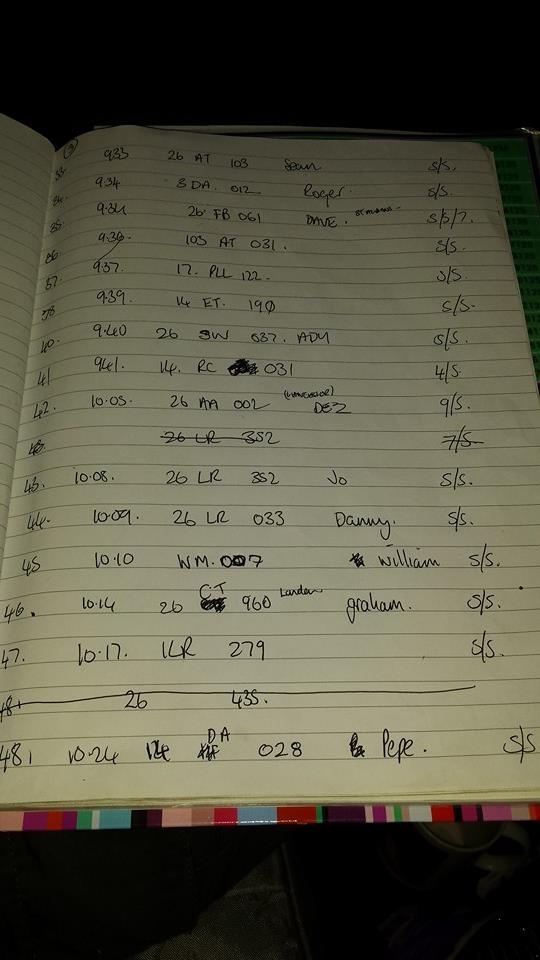 3
33. 9.33 26 AT 103 Sean S/S.
34. 9.34 3 DA. 012 Roger. S/S.
35. 9.34 26 FB 061 DAVE. S/S/7.
36. 9.36. 103 AT 031. S/S.
37. 9.37. 17. PLL 122. S/S.
9.39. 14 ET. 190 S/S.
40. 9.40 26 SW 037. ADY S/S.
41 941. 14. RC 031 4/S.
42. 10.05. 26 AA 002 DEZ 9/S.
26 LR 352 7/S
43. 10.08. 26 LR 352 Jo S/S.
44. 10.09. 26 LR 033 Danny. S/S.
45 10.10 WM.007 William S/S.
46. 10.14 26 CT 960 London graham. S/S.
47. 10.17. 1LR 279 S/S.
48. 26 435.
48. 10.24 14 DA 028 Pepe. S/S